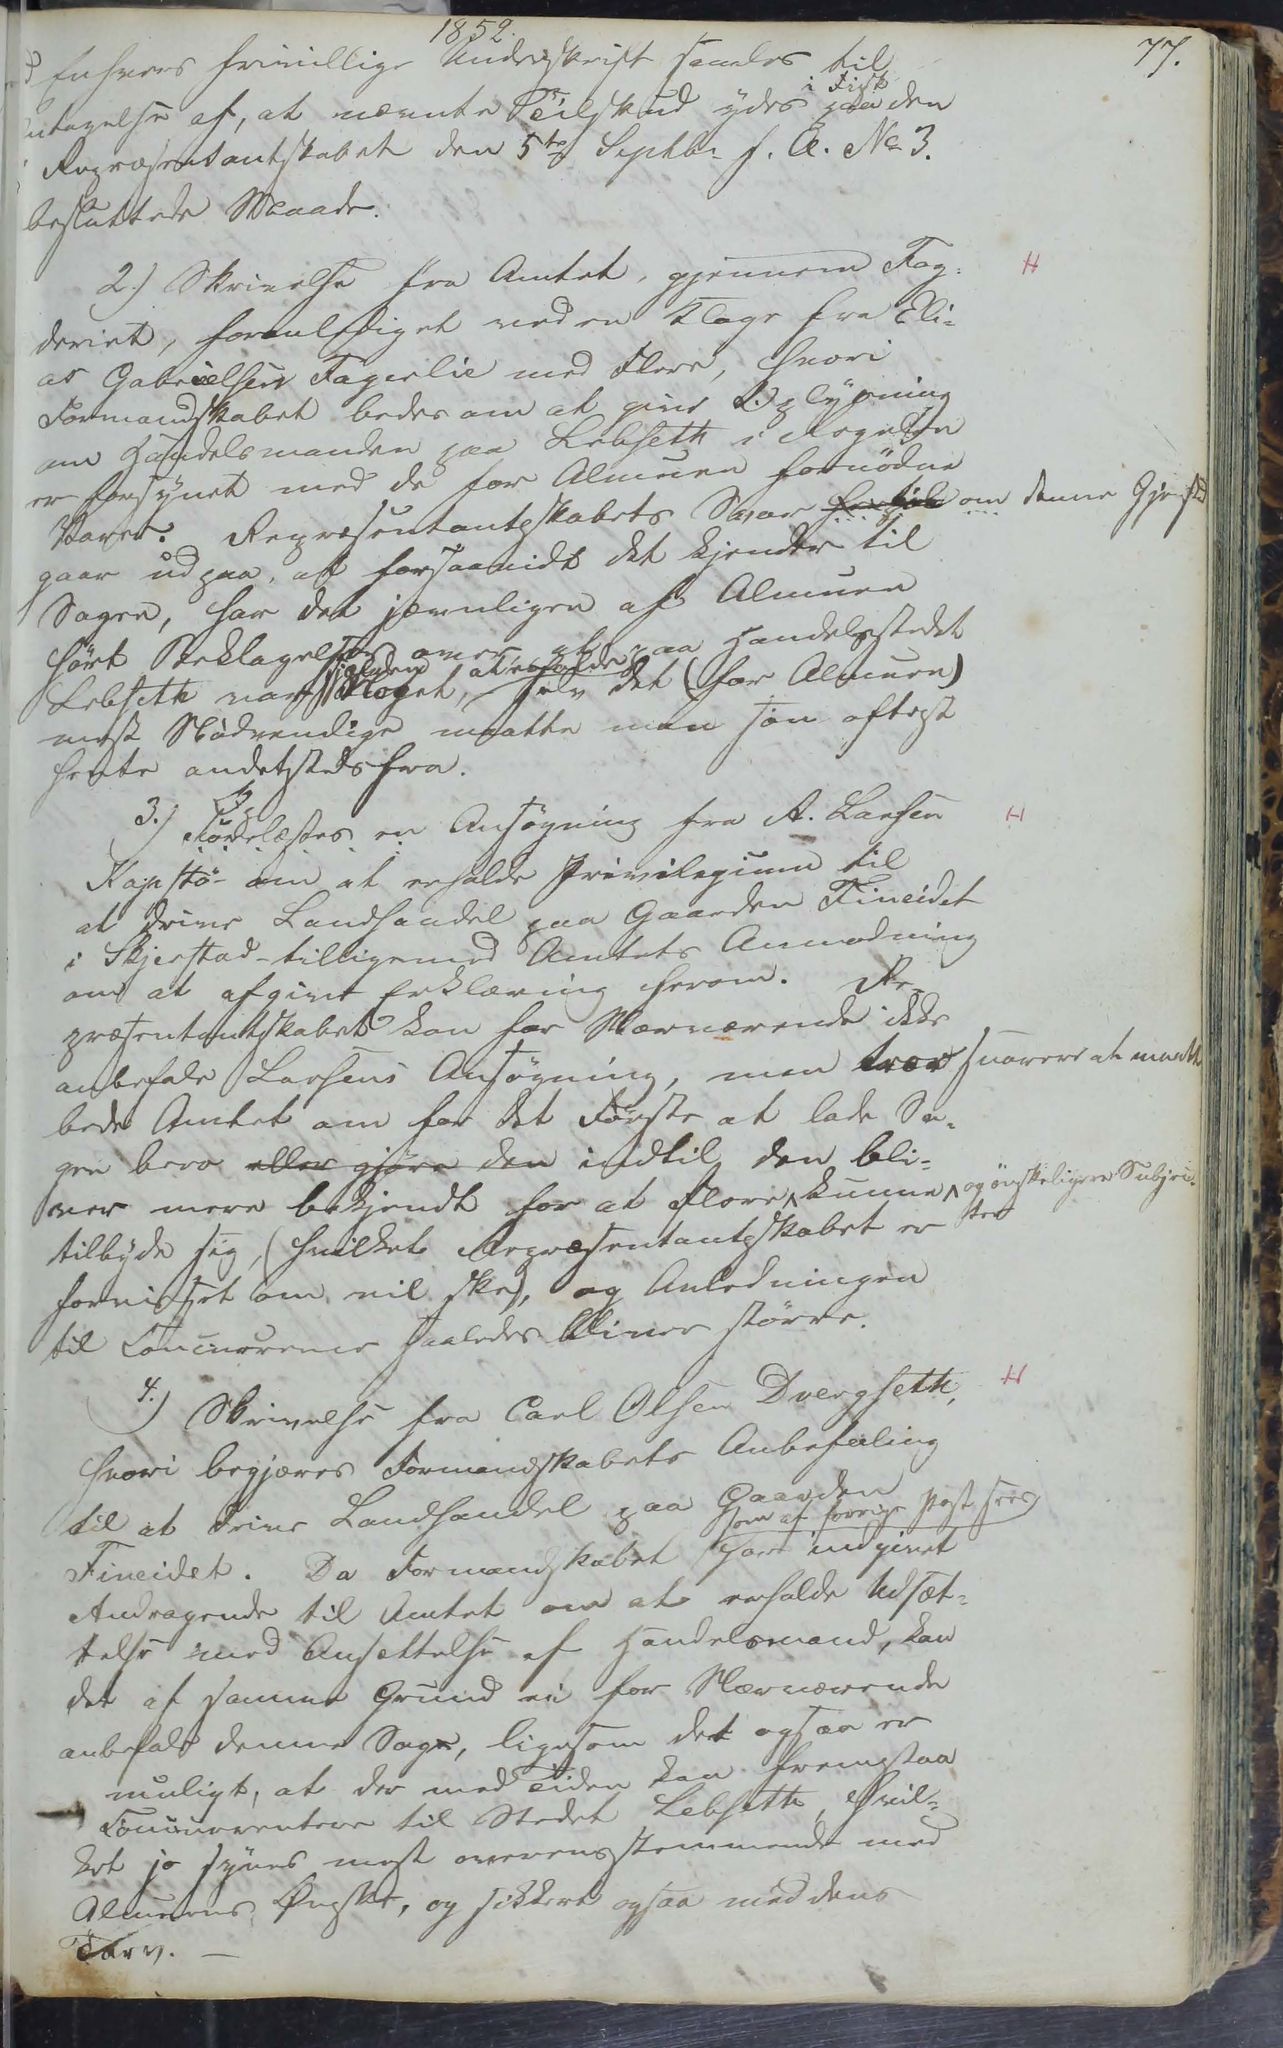 1852.
77.
Enhvers frivillige Underskrift samles til
Antagelse af, at nævnte Tilskud ydes i Fisk paa den
Repræsentantskabet den 5te Septbr f. A. No 3.
besluttede Maade.
2.) Skrivelse fra Amtet, gjennem Fog-
deriet, foranlediget ved en Klage fra Eli-
as Gabrielsen Fagerlie med Flere, hvori
Formandskabet bedes om at give Oplysning
om Handelsmanden paa Lebseth i Regelen
er forsynet med de for Almuen fornödne
Varer. Repræsentantskabets Svar om denne Gjenstand
gaar ud paa, at forsaavidt det kjender til
Sagen, har det jævnligen af Almuen
hört Beklagelse over at paa Handelsstedet
Lebseth var sjelden Noget at erholde, selv det (for Almuen)
mest Nödvendige maatte man som oftest
hente andetstedsfra.
3.) Oplæstes en Ansögning fra A. Larsen
Kapstö om at erholde Privilegium til
at drive Landhandel paa Gaarden Fineidet
i Skjerstad tilligemed Amtets Anmodning
om at afgive Erklæring herom. Re-
præsentantskabet kan for Nærværende ikke
anbefale Larsens Ansögning, men troer snarere at maatte
bede Amtet om for det Förste at lade Sa-
gen bero eller gjöre den indtil den bli-
ver mere bekjendt for at Flere og önskeligere Subjec-
ter kunne
tilbyde sig, (hvilket Repræsentantskabet er
forvisset om vil ske), og Anledningen
til Concurrence saaledes bliver större.
4.) Skrivelse fra Carl Olsen Dvergseth,
hvori begjæres Formandskabets Anbefaling
til at drive Landhandel paa Gaarden
Fineidet. Da Formandskabet som af forrige Post sees har indgivet
Andragende til Amtet om at erholde Udsæt-
telse med Ansættelse af Handelsmand, kan
det af samme Grund ei for Nærværende
anbefale denne Sag, ligesom det ogsaa er
muligt, at der med Tiden kan fremstaa
Concurrentere til Stedet Lebseth, hvil-
ket jo synes mest overensstemmende med
Almuens Önske, og sikkert ogsaa med dens
Tarv. —